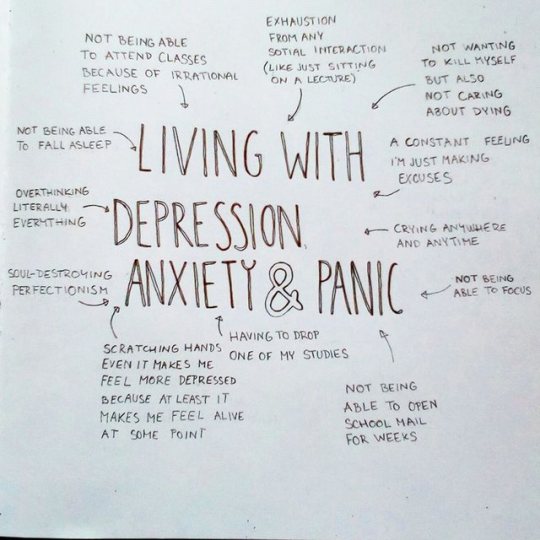 NOT BEING ABLE
TO ATTEND CLASSES
BECAUSE OF IRRATIONAL
FEELINGS
EXHAUSTION
FROM ANY
SOTIAL INTERACTION
(LIKE JUST SITTING
ON A LECTURE)
NOT WANTING
TO KILL MYSELF
BUT ALSO
NOT CARING
ABOUT DYING
NOT BEING ABLE
TO FALL ASLEEP
LIVING WITH
DEPRESSION,
ANXIETY & PANIC
A CONSTANT FEELING
I'M JUST MAKING
EXCUSES
OVERTHINKING
LITERALLY
EVERMTHING
CRYING ANYWHERE
AND ANYTIME
SOUL-DESTROYING
PERFECTIONISM
NOT BEING
ABLE TO FOCUS
SCRATCHING HANDS
EVEN IT MAKES ME
FEEL MORE DEPRESSED
BECAUSE AT LEAST IT
MAKES ME FEEL ALIVE
AT SOME POINT
HAVING TO DROP
ONE OF MY STUDIES
NOT BEING
ABLE TO OPEN
SCHOOL MAIL
FOR WEEKS